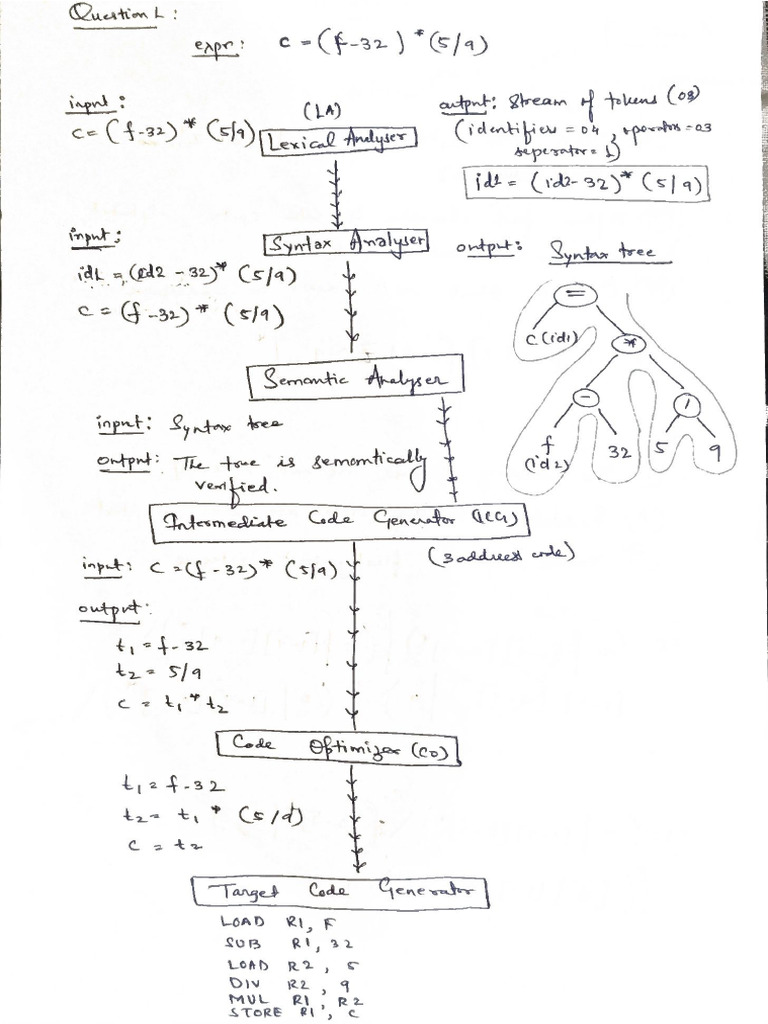 Question 1:
expr: c = (f-32) * (5/9)
input:
c = (f-32) * (5/9)
(LA)
Lexical Analyser
output: Stream of tokens (08)
(identifiers = 04, operators = 03
seperator = 1)
id1 = (id2-32) * (5/9)
input:
id1 = (id2 - 32) * (5/9)
c = (f-32) * (5/9)
Syntax Analyser
output: Syntax tree
=
c (id1)
*
-
/
f
(id2)
32
5
9
Semantic Analyser
input: Syntax tree
output: The tree is semantically
verified.
Intermediate Code Generator (ICG)
(3 address code)
input: c = (f - 32) * (5/9)
output:
t1 = f-32
t2 = 5/9
c = t1 * t2
Code Optimizer (CO)
t1 = f-32
t2 = t1 * (5/9)
c = t2
Target Code Generator
LOAD R1, F
SUB R1, 32
LOAD R2, 5
DIV R2, 9
MUL R1, R2
STORE R1, C